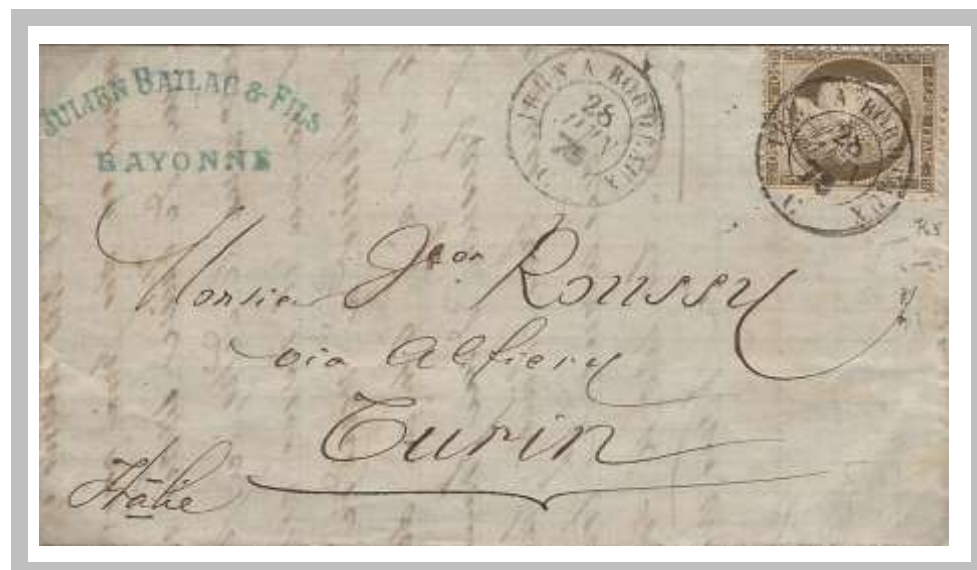 JULIEN BAILAC & FILS
BAYONNE
A BORDEAUX
28
JUIN
75
A BORDEAUX
28
Monsieur Jean Roussy
via Alfiery
Turin
Italie